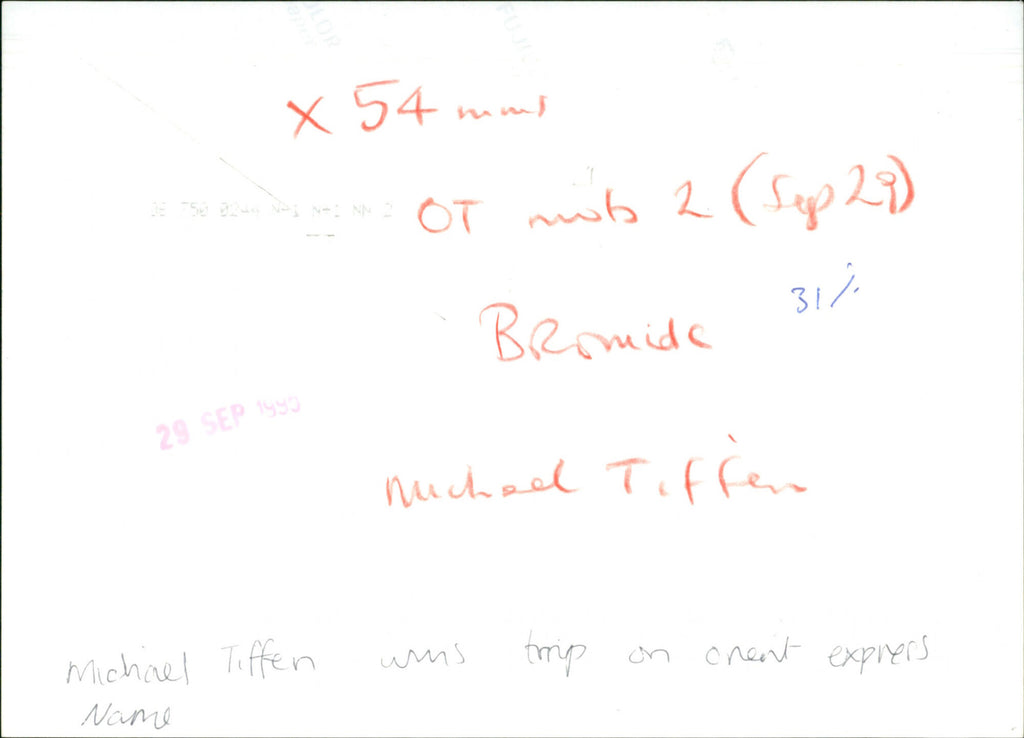 × 54 mms
OT mobs 2 (Sep 29)
31 %
Bromide
29 SEP 1995
Michael Tiffen
Michael Tiffen wins trip on orient express
Name